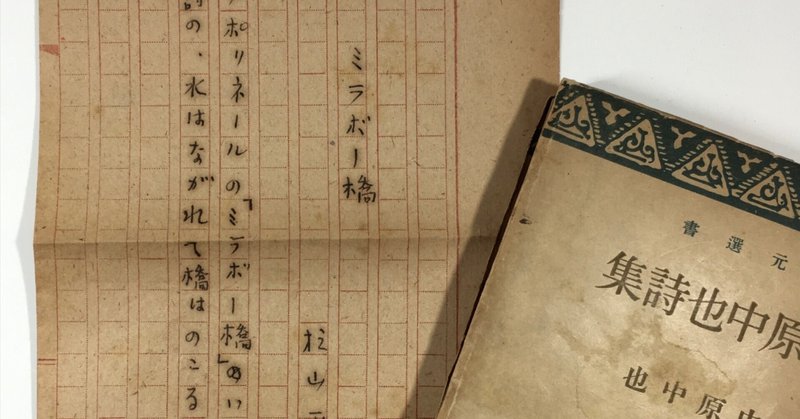 ミラボー橋
杉山
ポリネールの「ミラボー橋」のい
詩の、水はながれて橋はのこる
元選書
原中也詩集
中原中也